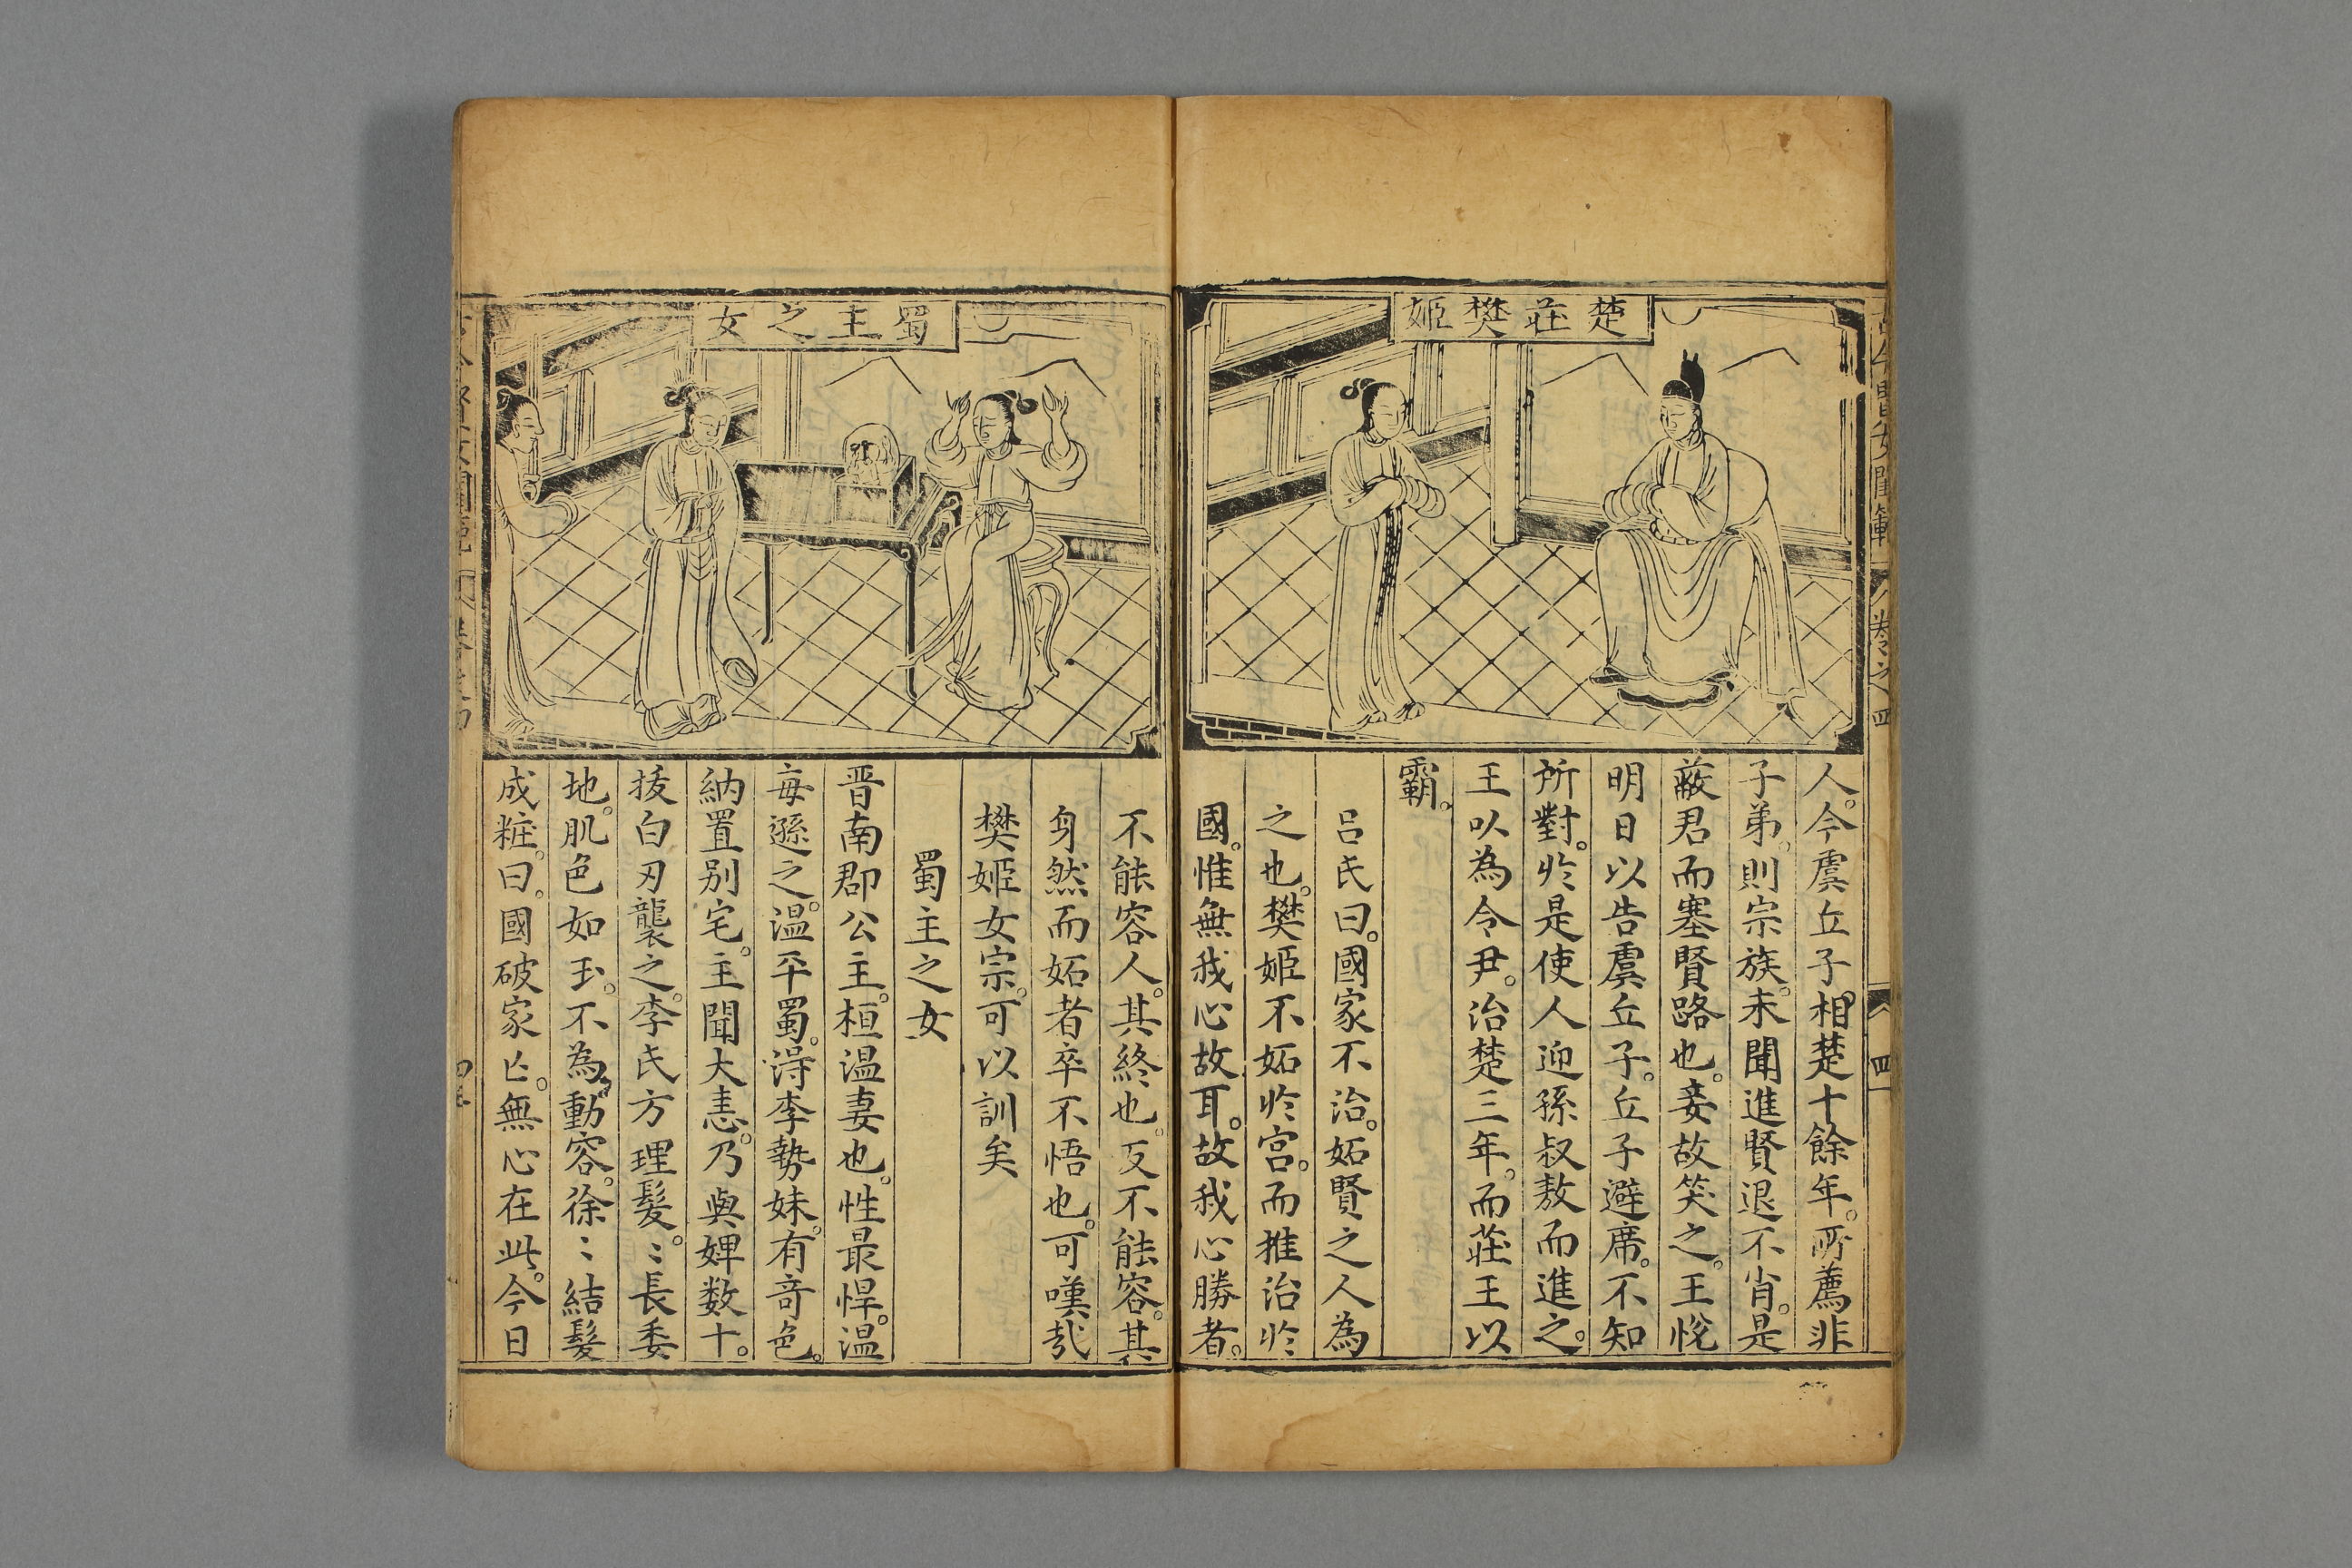 楚莊樊姬
人。今虞丘子。相楚十餘年。所薦非
子弟。則宗族。未聞進賢退不肖。是
蔽君而塞賢路也。妾故笑之。王悅
明日以告虞丘子。丘子避席。不知
所對。於是使人迎孫叔敖而進之。
王以為令尹。治楚三年。而莊王以
霸。
呂氏曰。國家不治。妬賢之人為
之也。樊姬不妬於宮。而推治於
國。惟無我心故耳。故我心勝者。
不能容人。其終也。反不能容。其
身然而妬者卒不悟也。可嘆哉
樊姬女宗。可以訓矣
蜀主之女
蜀主之女
晋南郡公主。桓溫妻也。性最悍。溫
每遜之。溫平蜀。淂李勢妹。有竒色。
納置别宅。主聞大恚。乃與婢数十。
拔白刃襲之。李氏方理髮。〻長委
地。肌色如玉。不為動容。徐〻結髮
成粧。曰。國破家亡。無心在此。今日